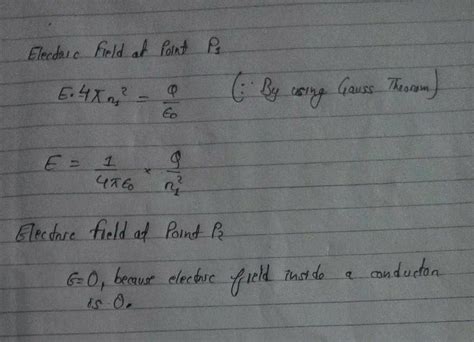 Electric Field at Point P₁
E·4πr₁² = Q/ε₀ (∵ By using Gauss Theorem)
E = 1/4πε₀ × Q/r₁²
Electric field at Point P₂
E=0, because electric field inside a conductor
is 0.